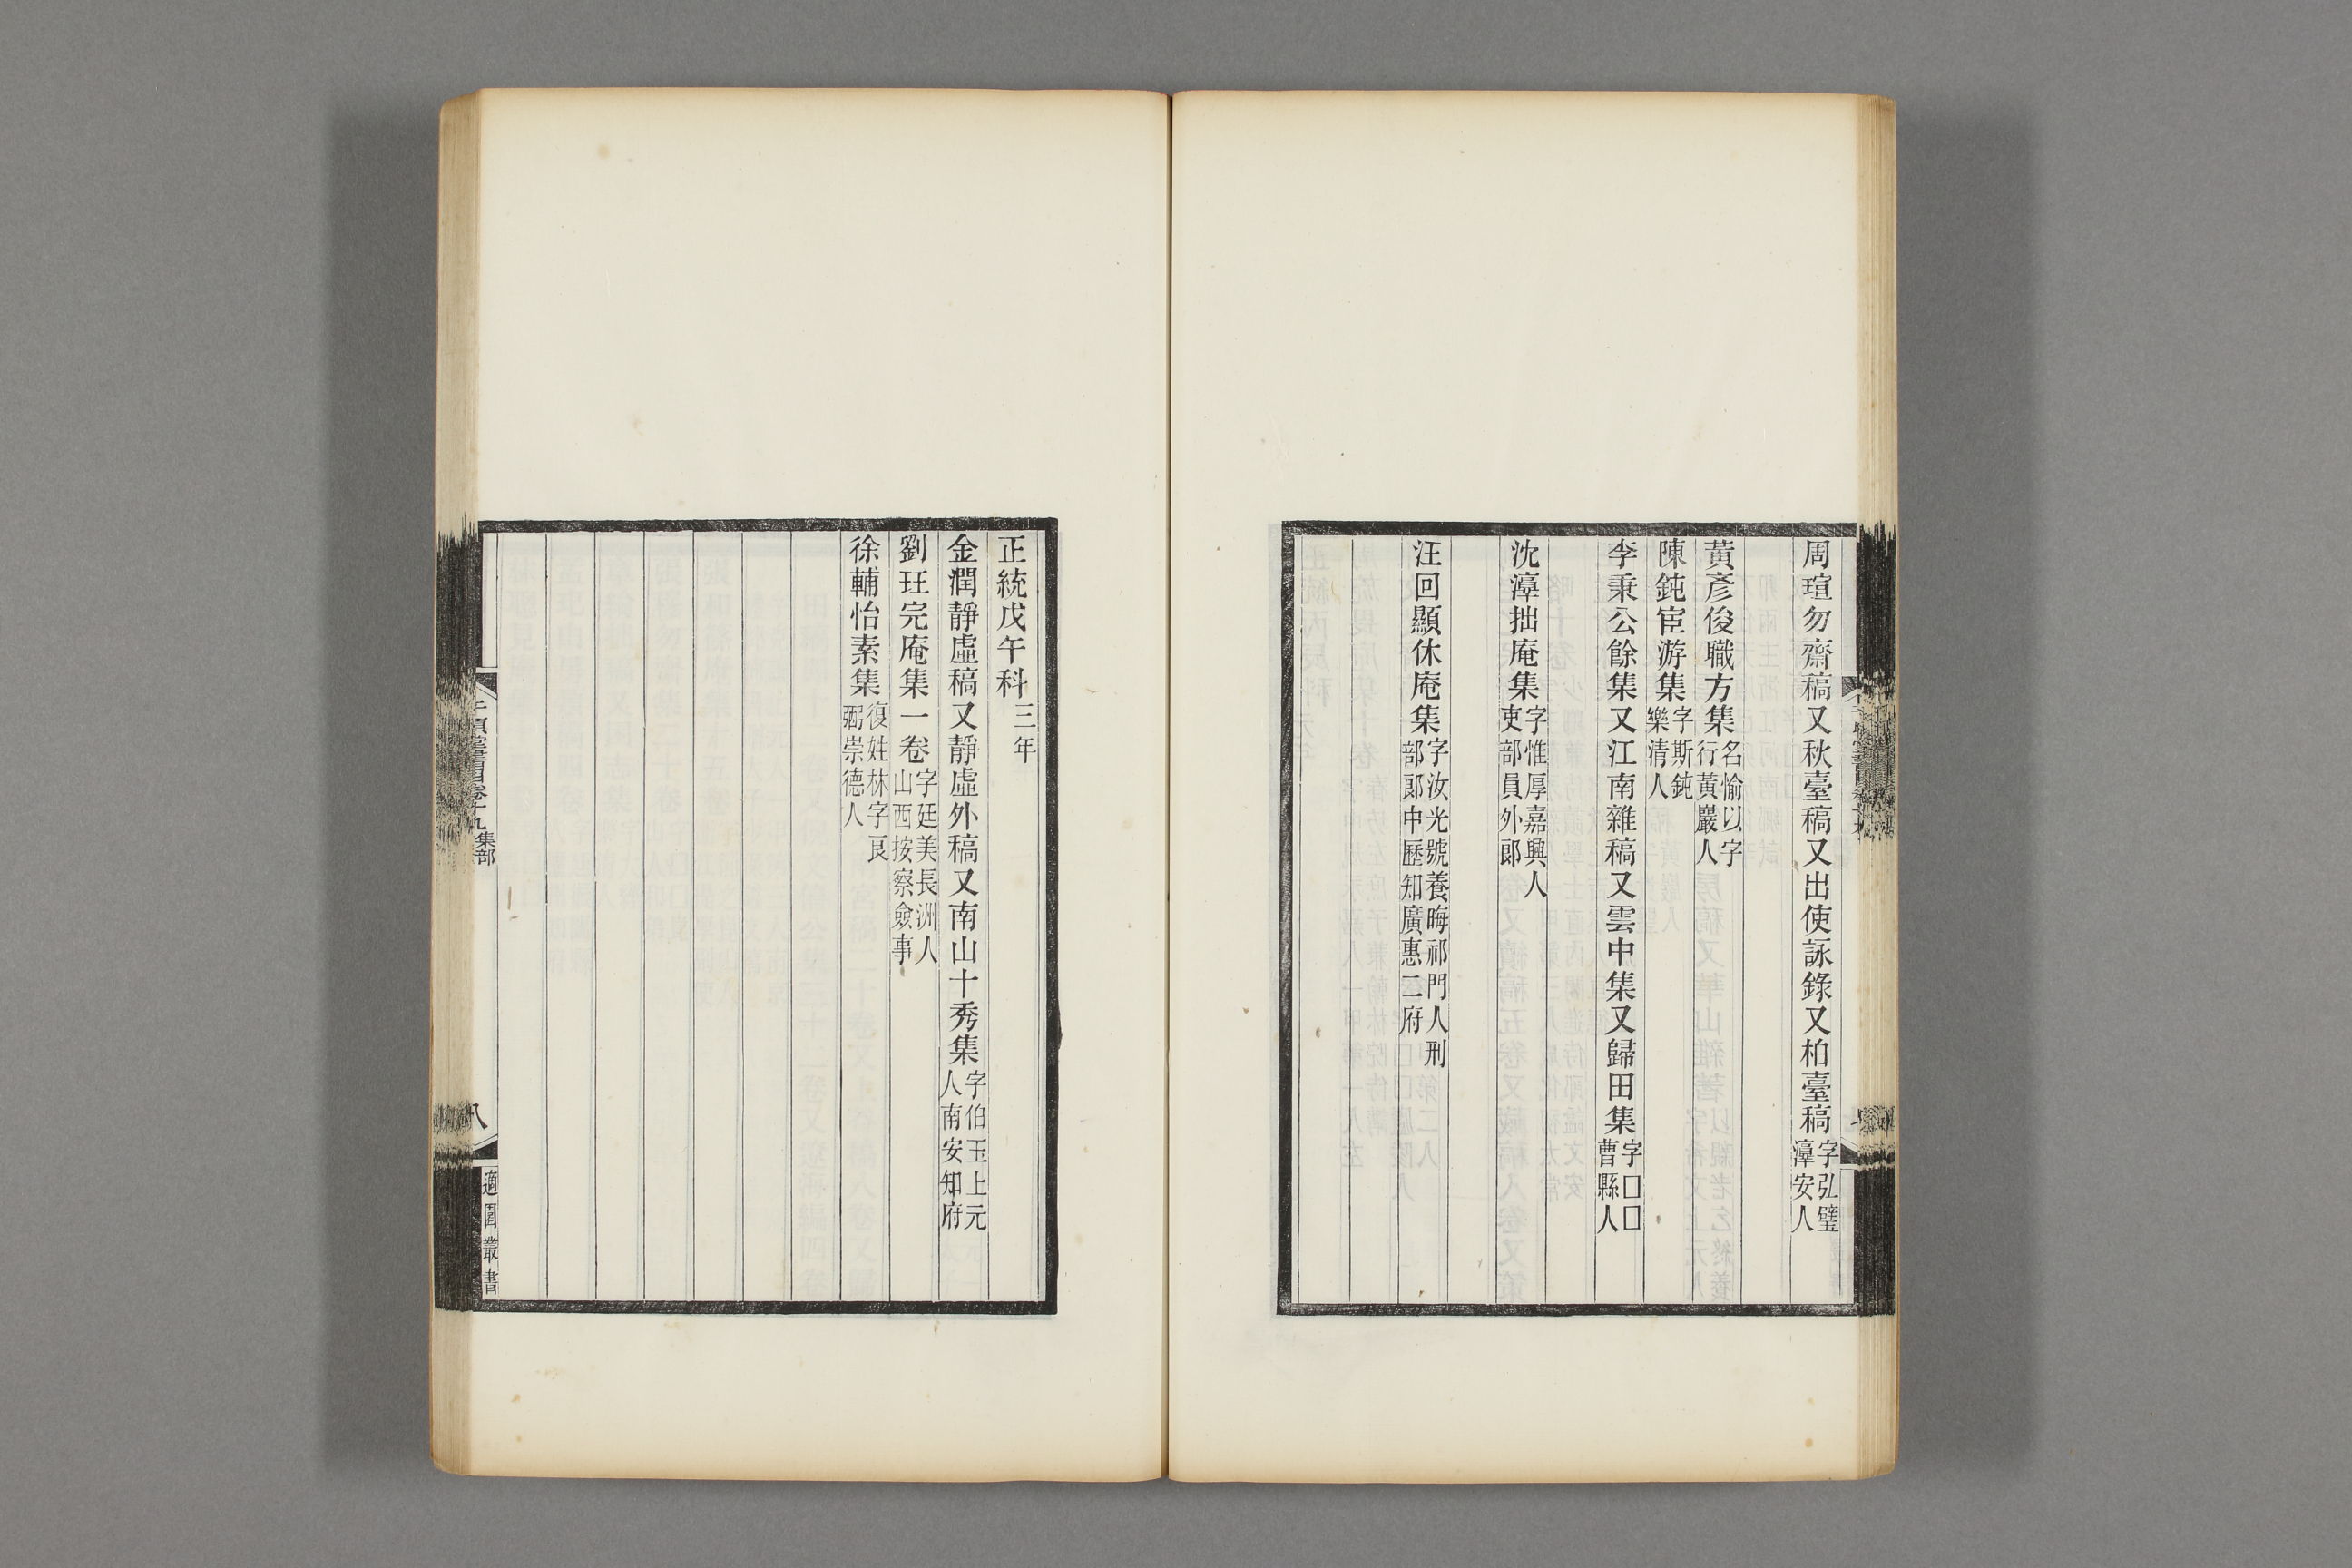 周瑄勿齋稿又秋臺稿又出使詠錄又柏臺稿字弘璧漳安人
黃彥俊職方集名愉以字行黃巖人
陳鈍宦游集字斯鈍樂清人
李秉公餘集又江南雜稿又雲中集又歸田集字□□曹縣人
沈漳拙庵集字惟厚嘉興人吏部員外郎
汪回顯休庵集字汝光號養晦祁門人刑部郎中歷知廣惠二府
正統戊午科三年
金潤靜虛稿又靜虛外稿又南山十秀集字伯玉上元人南安知府
劉珏完庵集一卷字廷美長洲人山西按察僉事
徐輔怡素集復姓林字良弼崇德人
千頃堂書目卷十九集部
八
適園叢書